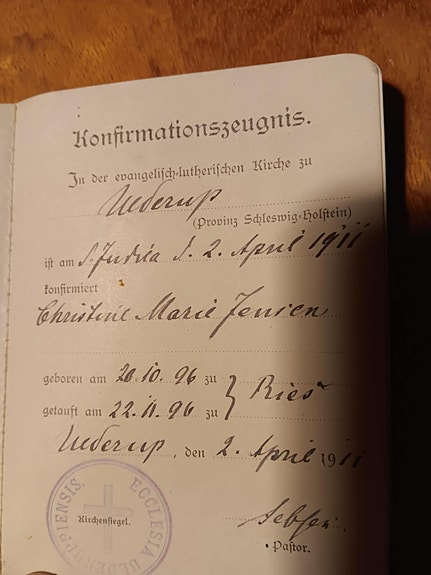 Konfirmationszeugnis.
In der evangelisch-lutherischen Kirche zu
Uderup
(Provinz Schleswig-Holstein)
ist am S. Judica d. 2. April 1911
konfirmiert
Christine Marie Jensen
geboren am 20.10.96 zu
getauft am 22.11.96 zu } Ries
Uderup, den 2. April 1911
ECCLESIA
Kirchensiegel.
Pastor.